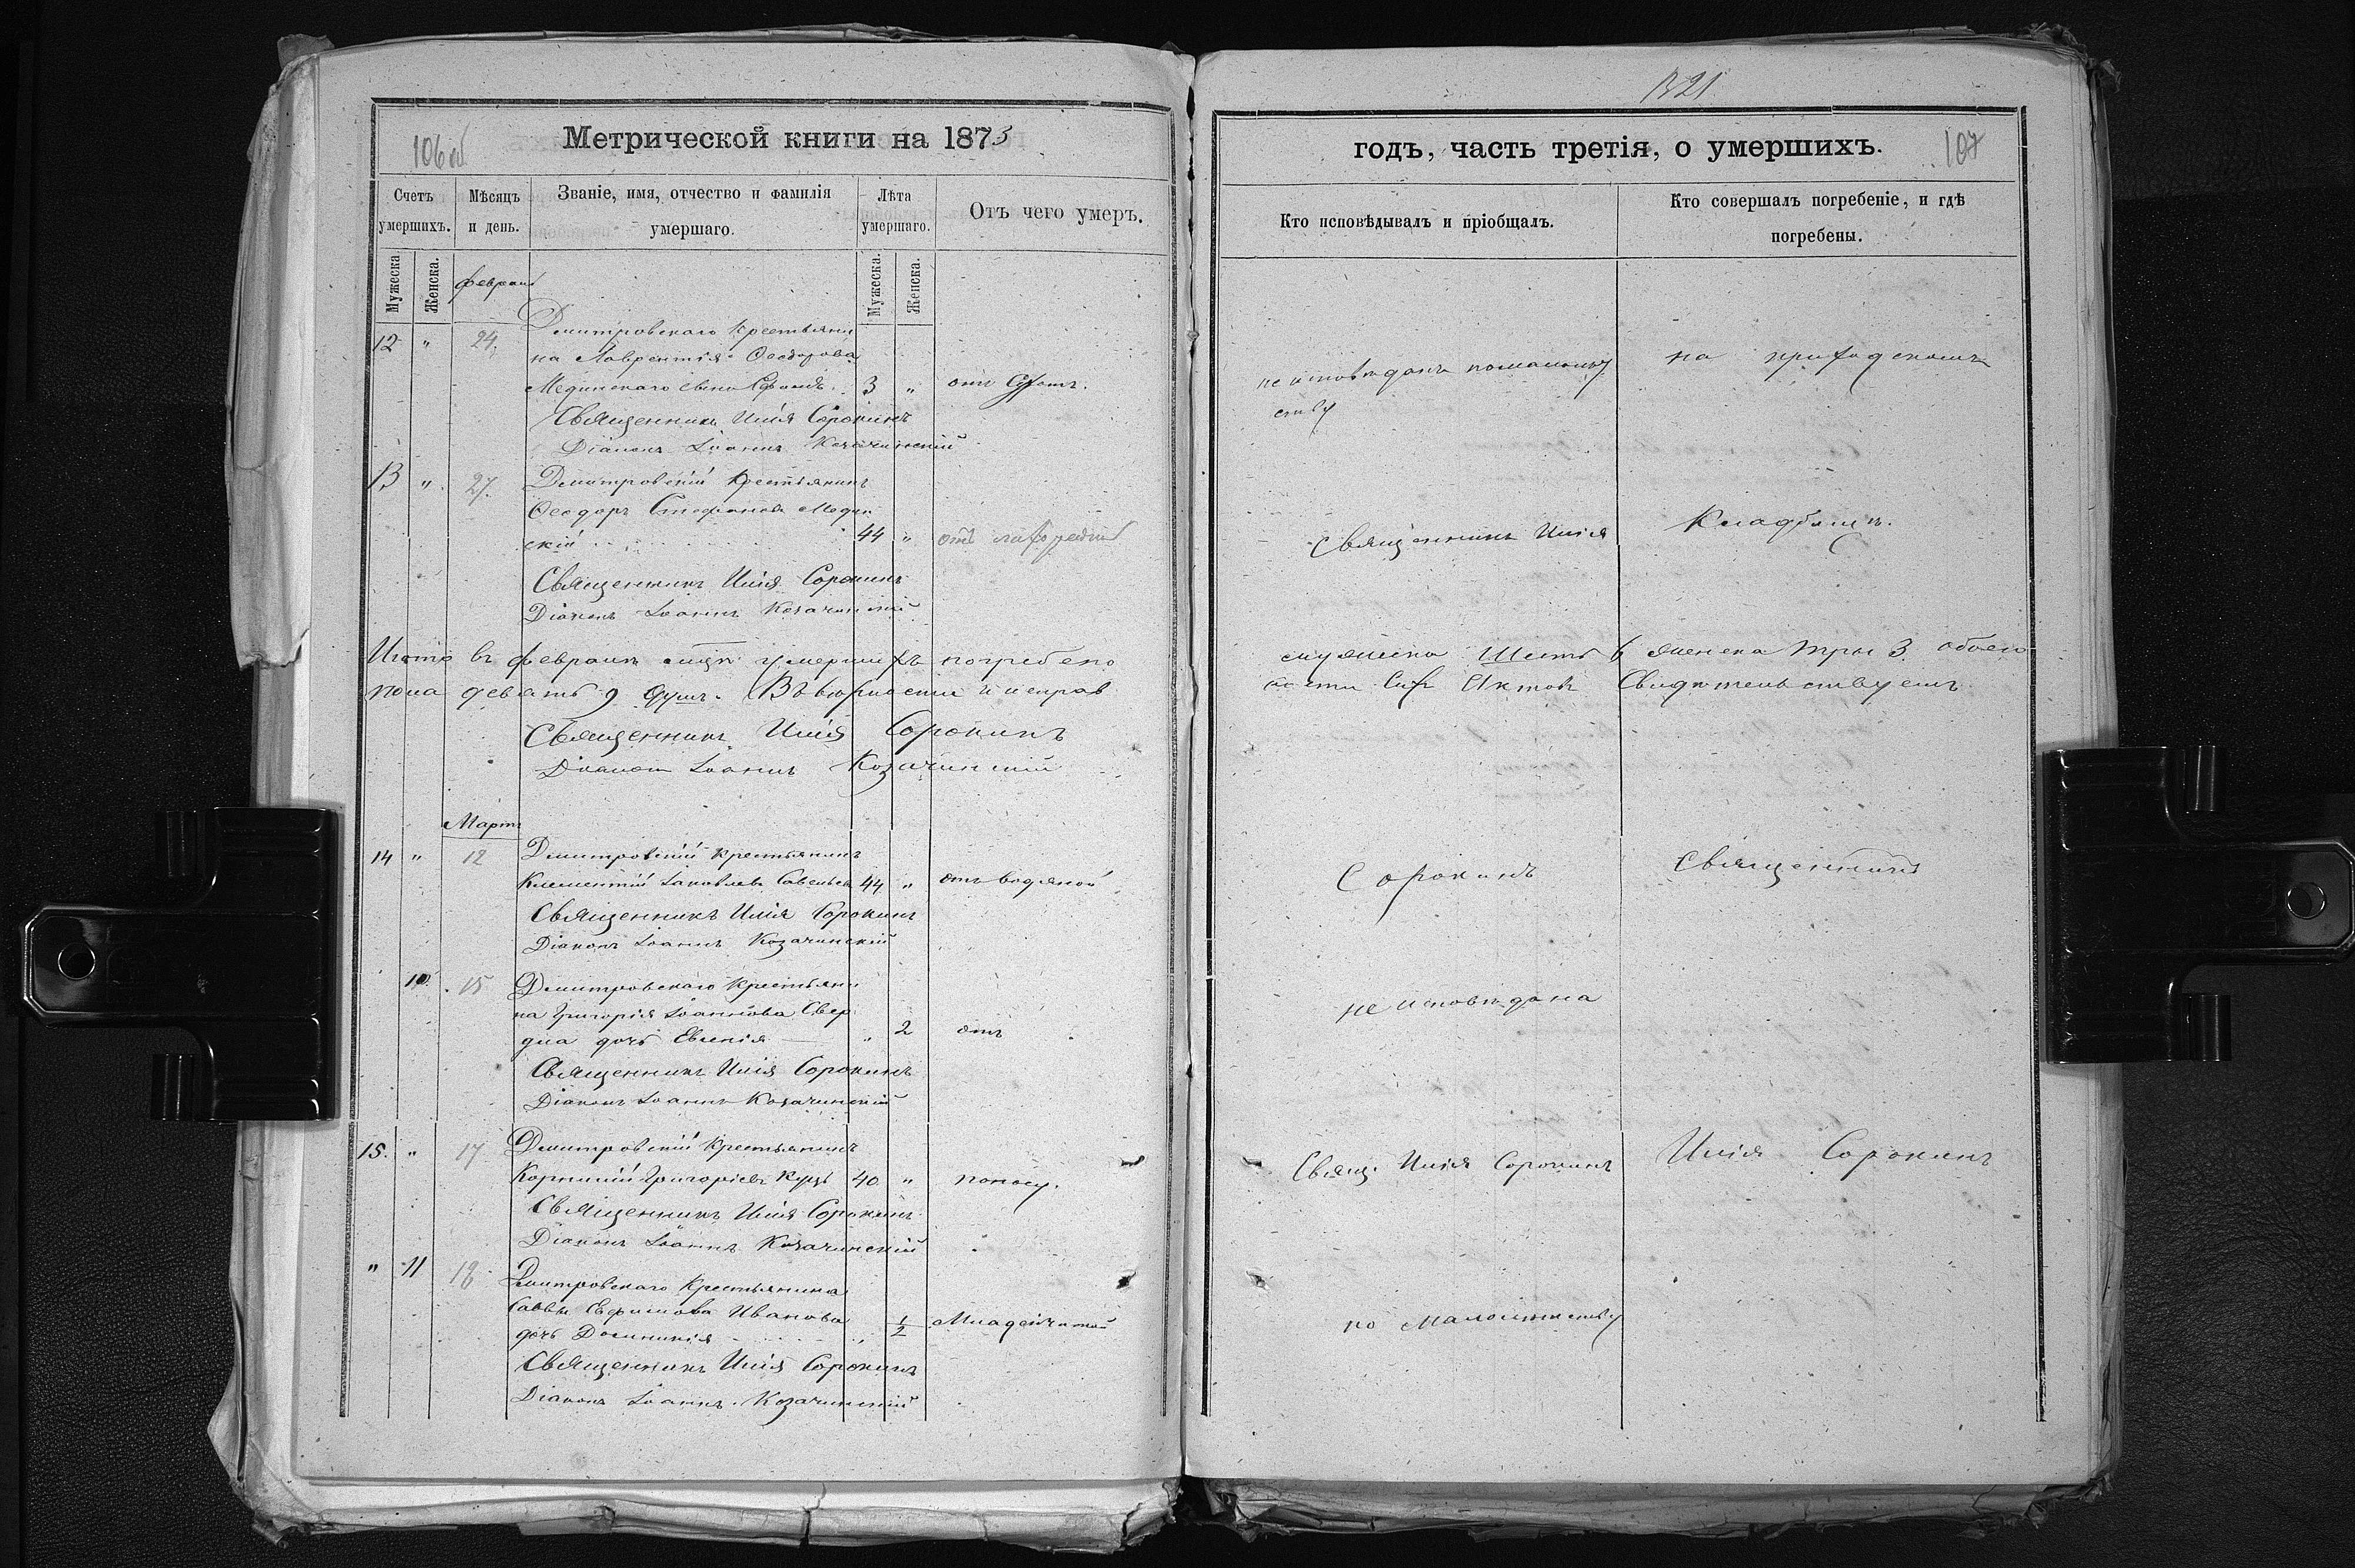 106 об
Метрической книги на 1873
Счетъ умершихъ.
Мѣсяцъ и день.
Званіе, имя, отчество и фамилія умершаго.
Лѣта умершаго.
Отъ чего умеръ.
Мужеска
Женска.
Мужеска.
Женска.
февраль
12 " 24
Дмитровскаго крестьяни
на Лаврентія Ѳеодорова
Мединскаго сынъ 3 " отъ
Священникъ Илія Сорокинъ
Діаконъ Іоаннъ Козачинскій
13 " 27.
Дмитровскій крестьянинъ
Ѳеодоръ Стефановъ Медин
скій 44 " отъ лихорадки
Священникъ Илія Сорокинъ
Діаконъ Іоаннъ Козачинскій
Итого въ февралѣ мцѣ умершихъ погребено
пола девять 9 душъ. Въ вѣрности и исправ
Священникъ Илія Сорокинъ
Діаконъ Іоаннъ Козачинскій
Мартъ
14 " 12
Дмитровскій крестьянинъ
Климентій Іаковлевъ Савельевъ 44 " отъ водяной
Священникъ Илія Сорокинъ
Діаконъ Іоаннъ Козачинскій
10. 15
Дмитровскаго крестьяни
на Григорія Іоаннова Свер
дла дочь Евгенія " 2 отъ
Священникъ Илія Сорокинъ
Діаконъ Іоаннъ Козачинскій
15. " 17
Дмитровскій крестьянинъ
Корнилій Григорьевъ 40 " поносу.
Священникъ Илія Сорокинъ
Діаконъ Іоаннъ Козачинскій
" 11 18
Дмитровскаго крестьянина
Саввы Ефимова Иванова
дочь Домникія " 1/2 Младенческой
Священникъ Илія Сорокинъ
Діаконъ Іоаннъ Козачинскій
1321
годъ, часть третія, о умершихъ.
107
Кто исповѣдывалъ и пріобщалъ.
Кто совершалъ погребеніе, и гдѣ погребены.
не исповѣданъ помалолѣт
ству
на приходскомъ
Священникъ Илія
Кладбищѣ.
мужеска Шесть 6 женска три 3. обоего
ности сихъ Актовъ Свидѣтельствуемъ
Сорокинъ
Священникъ
не исповѣдана
Свящ. Илія Сорокинъ
Илія Сорокинъ
по Малолѣтству